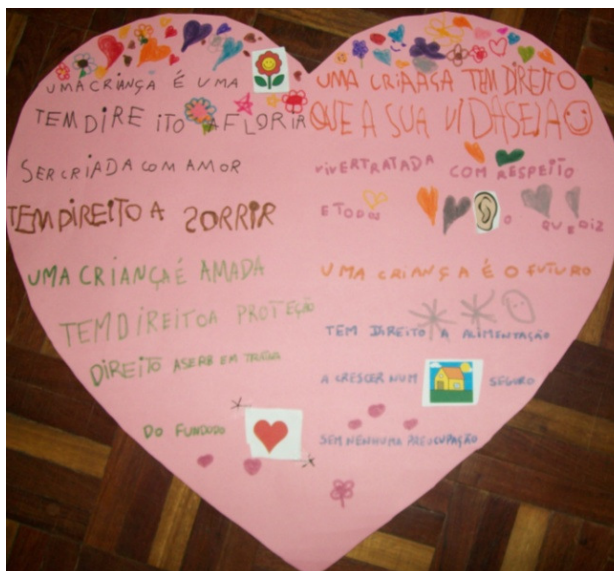 UMA CRIANÇA É UMA
TEM DIREITO A FLORIR
SER CRIADA COM AMOR
TEM DIREITO A SORRIR
UMA CRIANÇA É AMADA
TEM DIREITO A PROTEÇÃO
DIREITO A SER B EM TRATADA
DO FUNDO DO
UMA CRIANÇA TEM DIREITO
QUE A SUA VIDA SEJA
VIVER TRATADA COM RESPEITO
E TODOS O QUE DIZ
UMA CRIANÇA É O FUTURO
TEM DIREITO A ALIMENTAÇÃO
A CRESCER NUM SEGURO
SEM NENHUMA PREOCUPAÇÃO